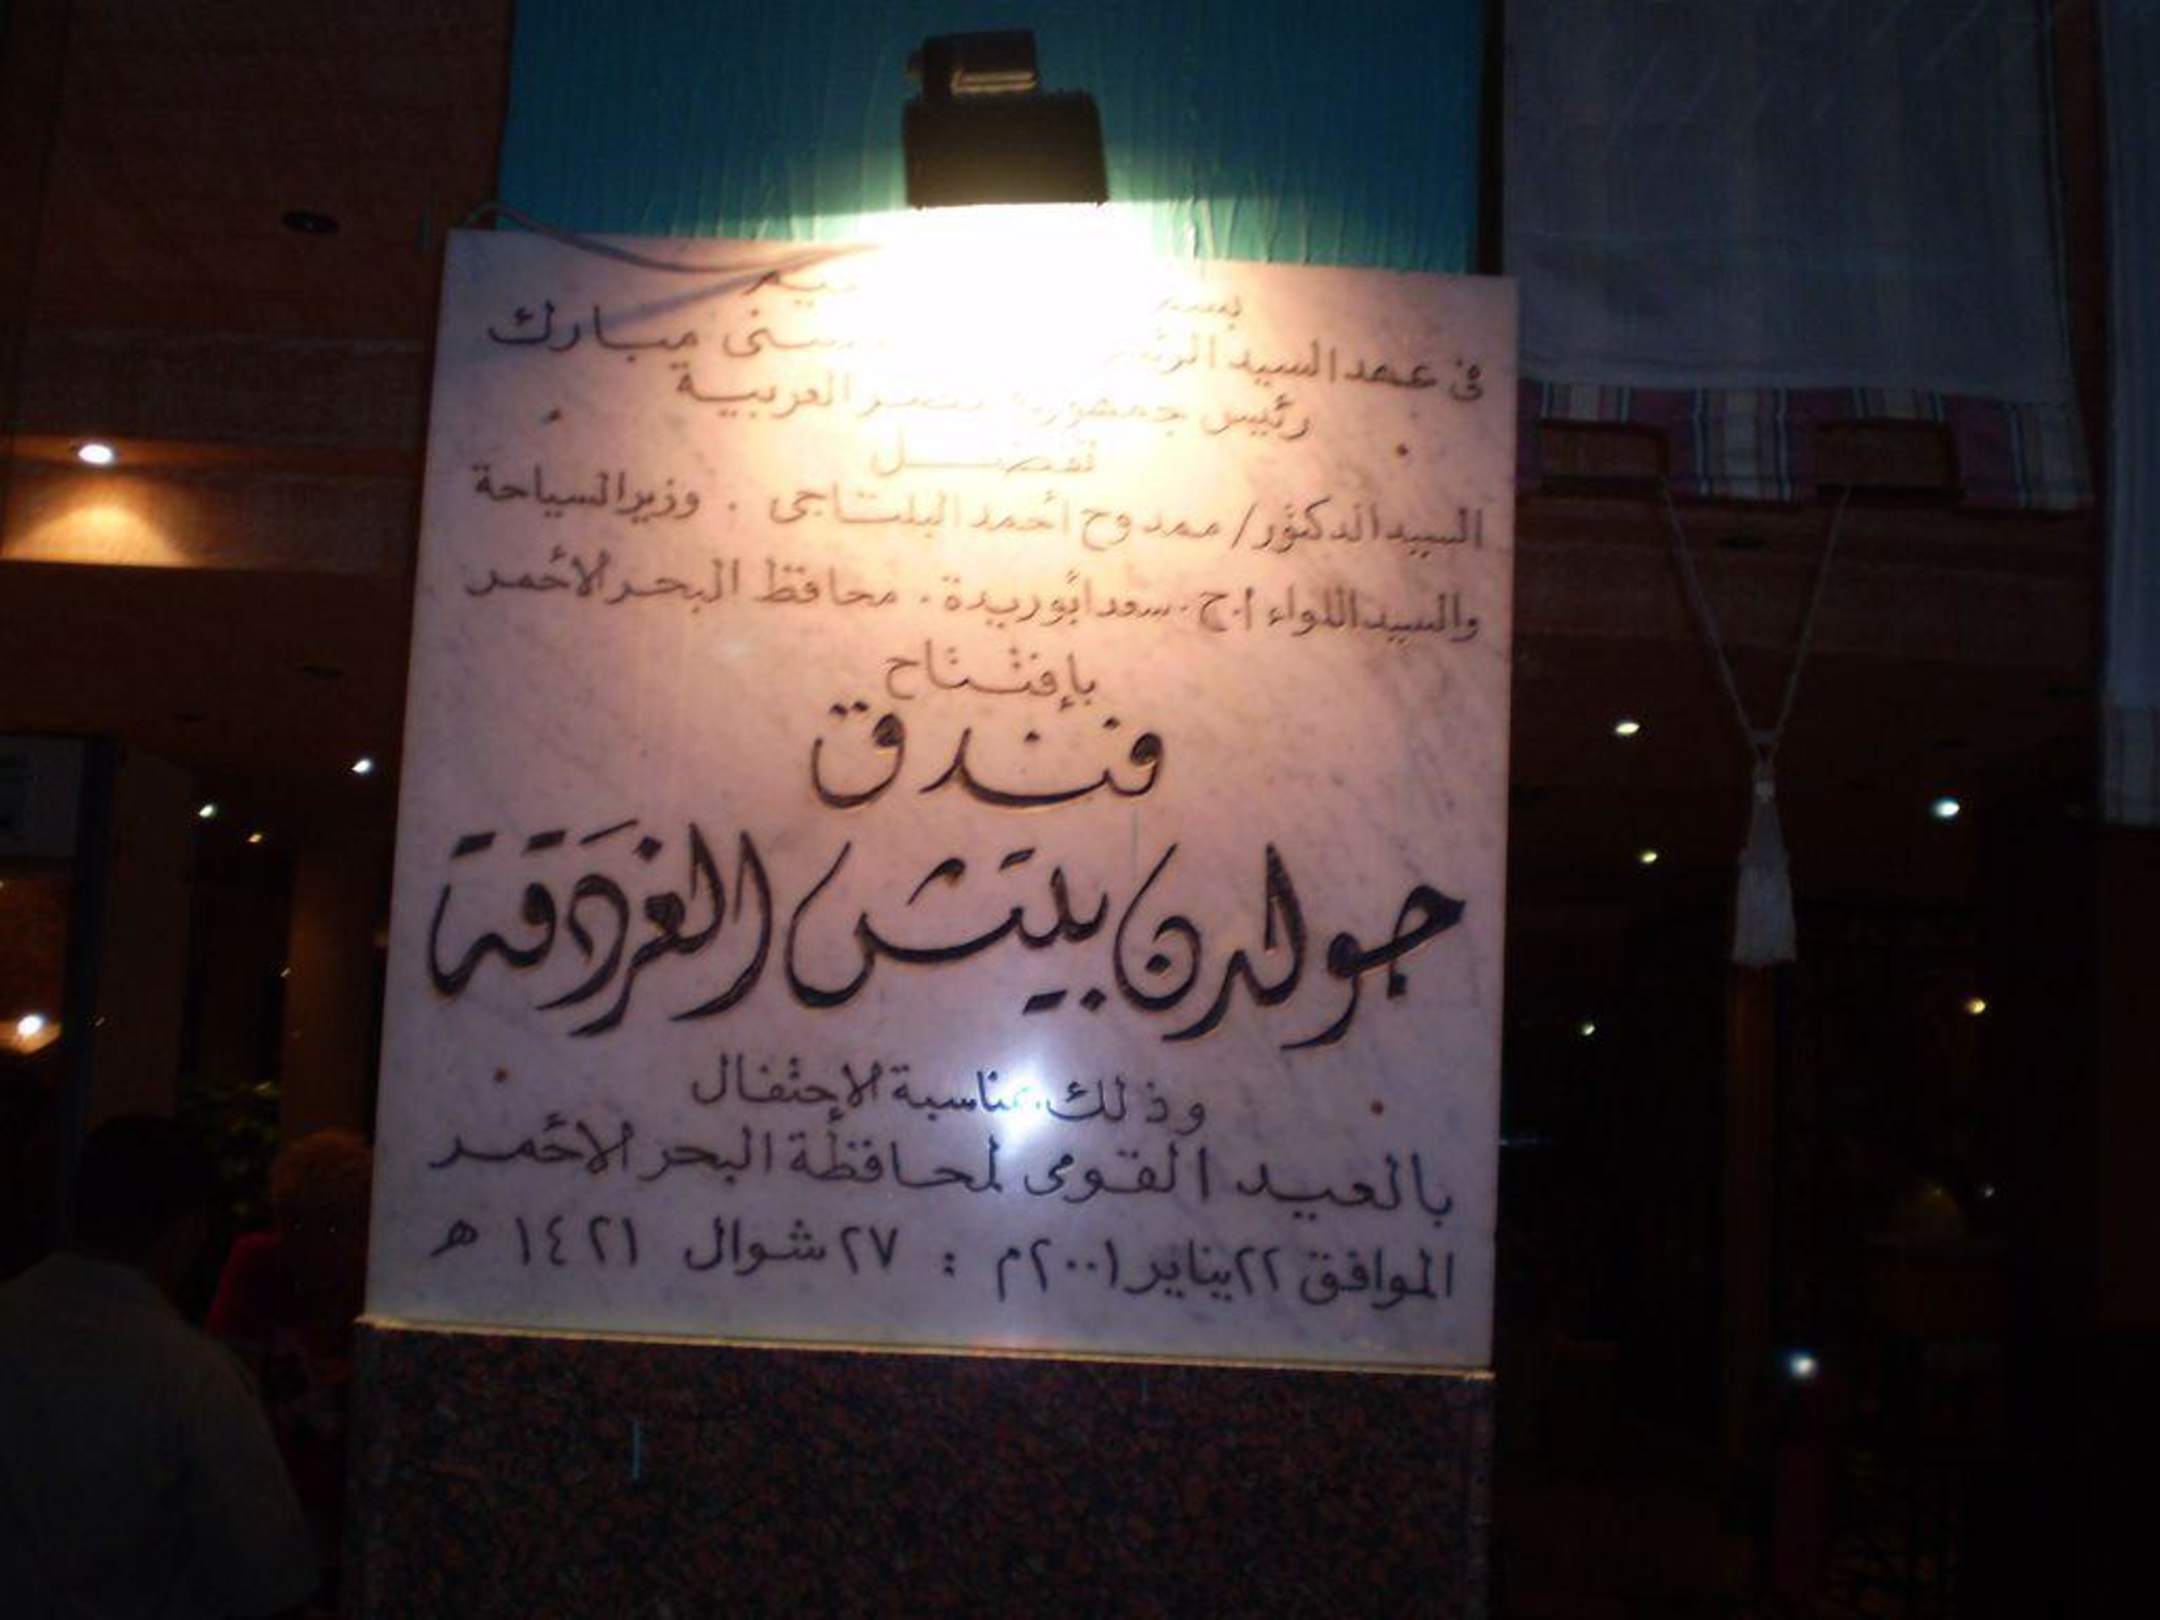 في عهد السيد الرئيس حسنى مبارك
رئيس جمهورية مصر العربية
تفضل
السيد الدكتور/ ممدوح أحمد البلتاجى . وزير السياحة
والسيد اللواء ا.ح. سعد أبوريدة . محافظ البحر الأحمر
بإفتتاح
فندق
جولدن بيتش الغردقة
وذلك بمناسبة الإحتفال
بالعيد القومى لمحافظة البحر الأحمر
الموافق ٢٢ يناير ٢٠٠١م : ٢٧ شوال ١٤٢١ هـ